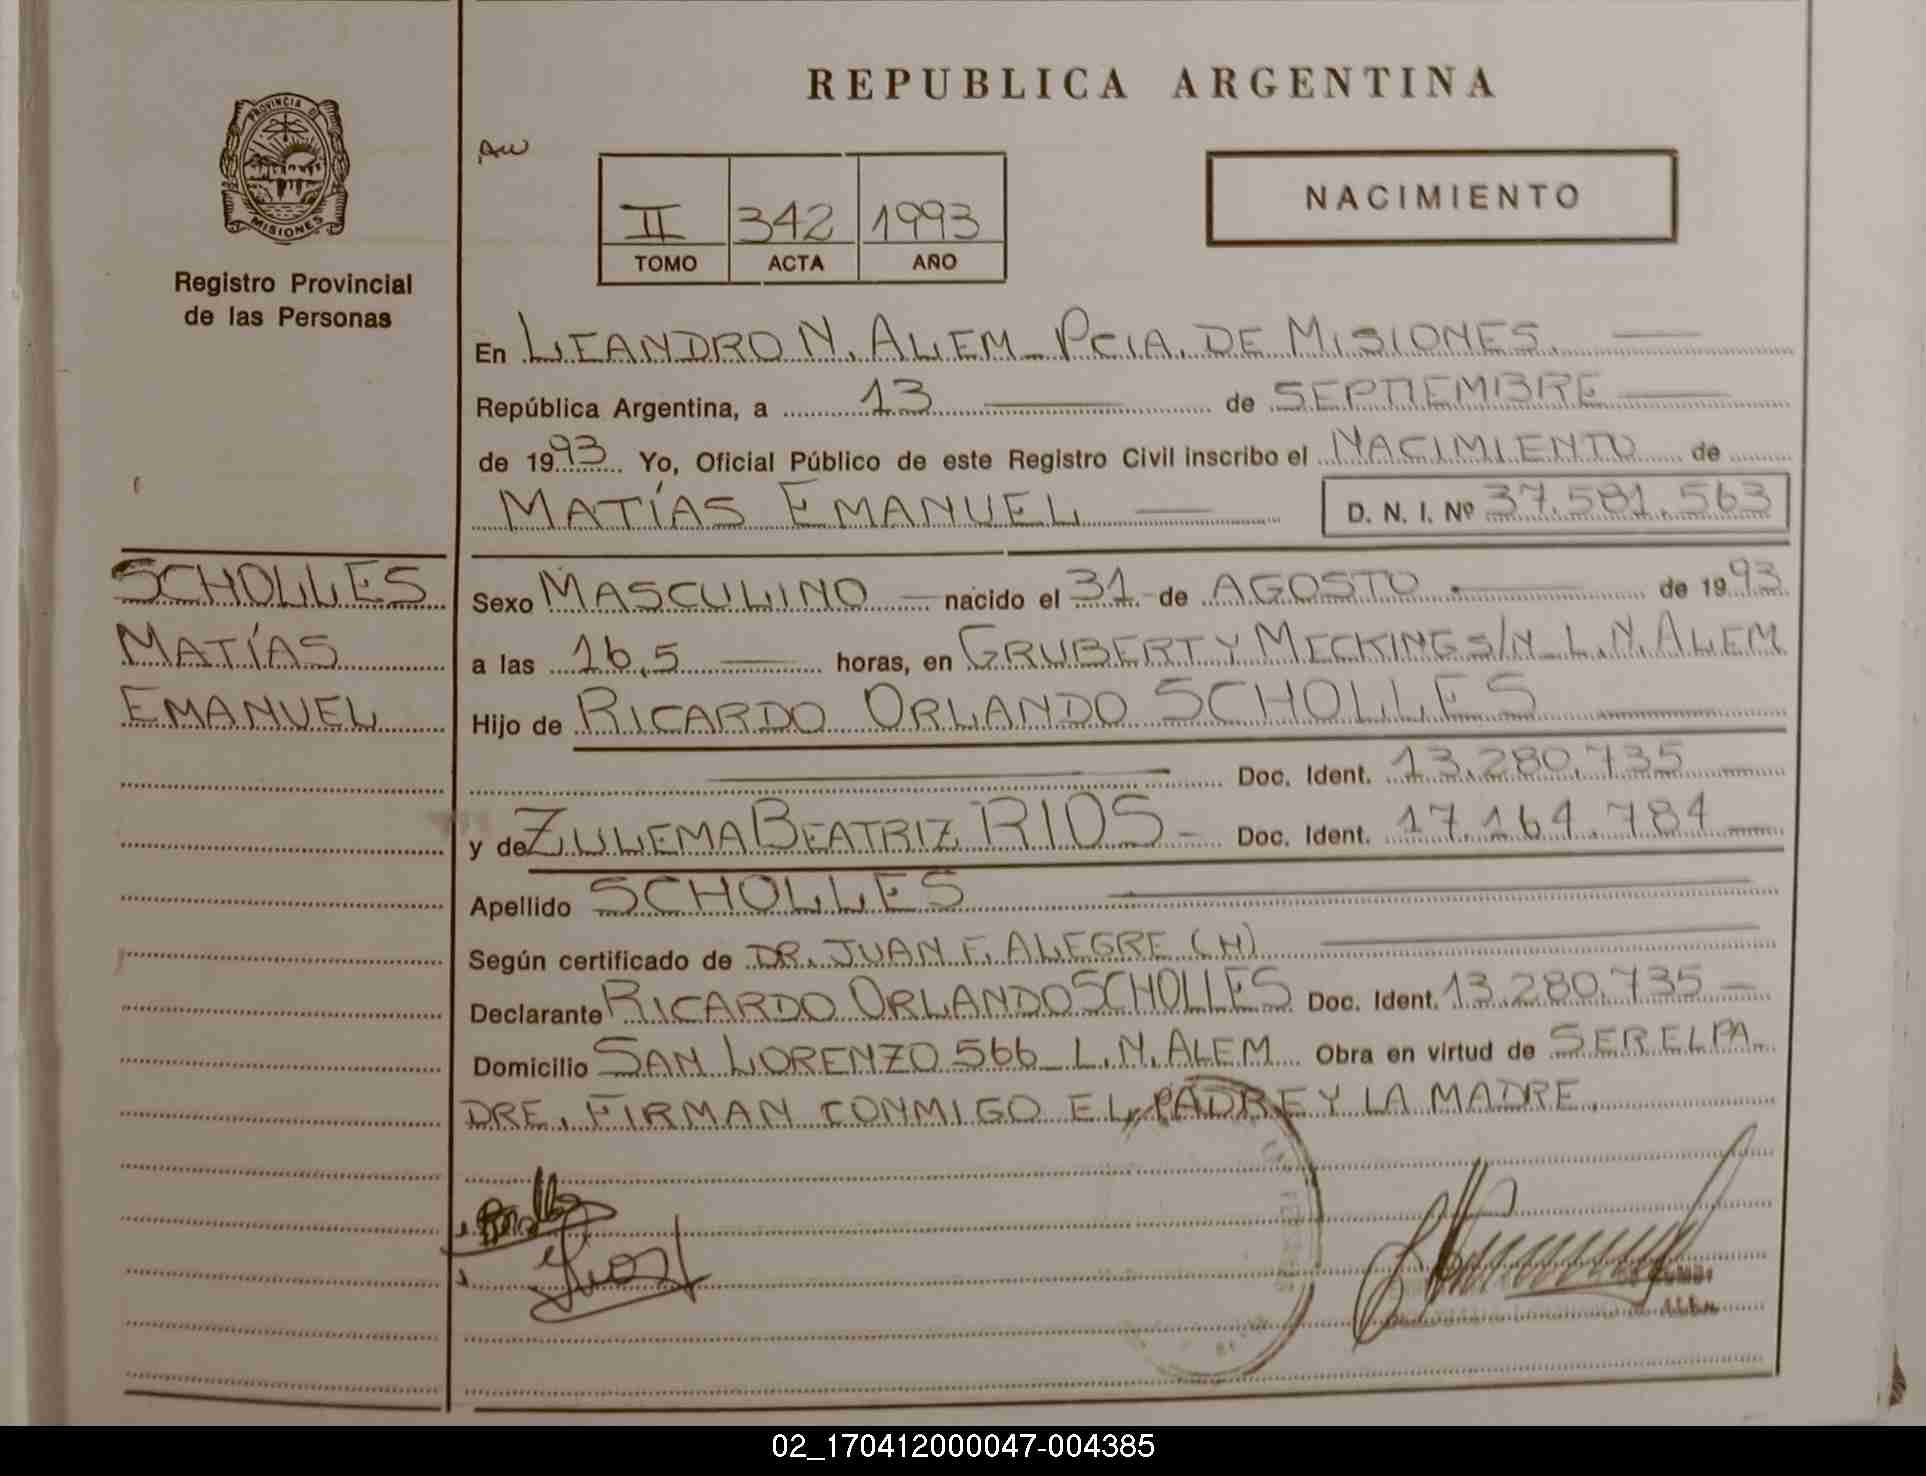 REPUBLICA ARGENTINA
PROVINCIA DE
MISIONES
Registro Provincial
de las Personas
NACIMIENTO
II 342 1993
TOMO ACTA AÑO
En LEANDRO N. ALEM - PCIA. DE MISIONES.
República Argentina, a 13 de SEPTIEMBRE
de 1993 Yo, Oficial Público de este Registro Civil inscribo el NACIMIENTO de
MATÍAS EMANUEL D. N. I. Nº 37.581.563
SCHOLLES
MATÍAS
EMANUEL
Sexo MASCULINO nacido el 31 de AGOSTO de 1993
a las 16,5 horas, en GRUBERT Y MECKING S/N - L.N. ALEM
Hijo de RICARDO ORLANDO SCHOLLES
Doc. Ident. 13.280.735
y de ZULEMA BEATRIZ RIOS - Doc. Ident. 17.164.784
Apellido SCHOLLES
Según certificado de DR. JUAN F. ALEGRE (H)
Declarante RICARDO ORLANDO SCHOLLES Doc. Ident. 13.280.735
Domicilio SAN LORENZO 566 - L.N. ALEM Obra en virtud de SER EL PA
DRE. FIRMAN CONMIGO EL PADRE Y LA MADRE.
02_170412000047-004385